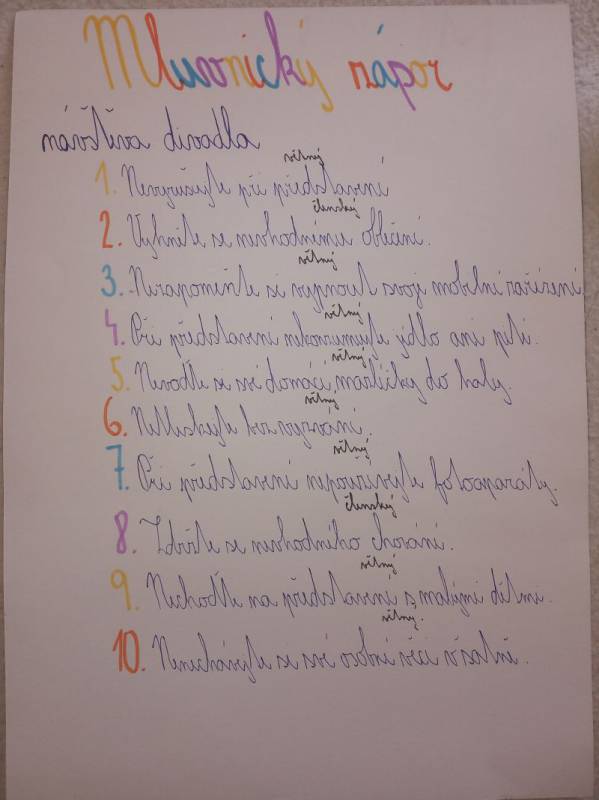 Mluvnický zápor
návštěva divadla
větný
1. Nevyrušujte při představení
členský
2. Vyhněte se nevhodnému oblečení.
větný
3. Nezapomeňte si vypnout svoje mobilní zařízení
větný
4. Při představení nekonzumujte jídlo ani pití.
větný
5. Nevoďte si své domácí mazlíčky do haly.
větný
6. Netleskejte bez vyzvání.
větný
7. Při představení nepoužívejte fotoaparáty.
členský
8. Zdržte se nevhodného chování.
větný
9. Nechoďte na představení s malými dětmi.
větný.
10. Nenechávejte si své osobní věci v šatně.